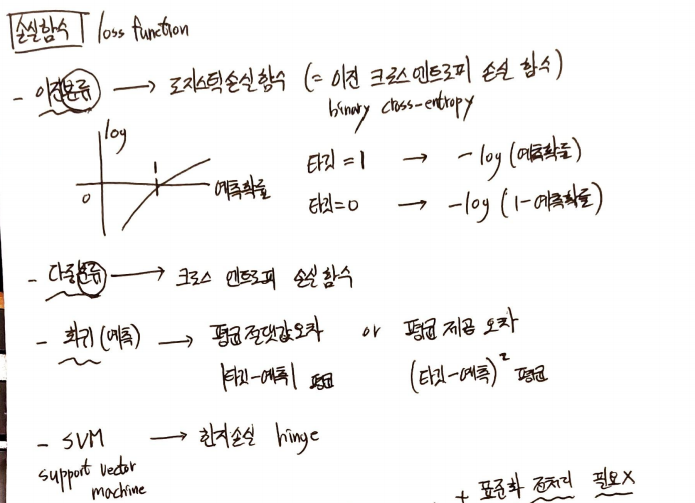 손실함수 loss function
- 이진분류 → 로지스틱손실함수 (= 이진 크로스 엔트로피 손실 함수)
binary cross-entropy
log
1
0
예측확률
타깃=1 → -log (예측확률)
타깃=0 → -log (1-예측확률)
- 다중분류 → 크로스 엔트로피 손실함수
- 회귀(예측) → 평균절댓값오차 or 평균제곱오차
|타깃-예측| 평균 (타깃-예측)² 평균
- SVM → 힌지손실 hinge
support vector
machine
+ 표준화 전처리 필요X